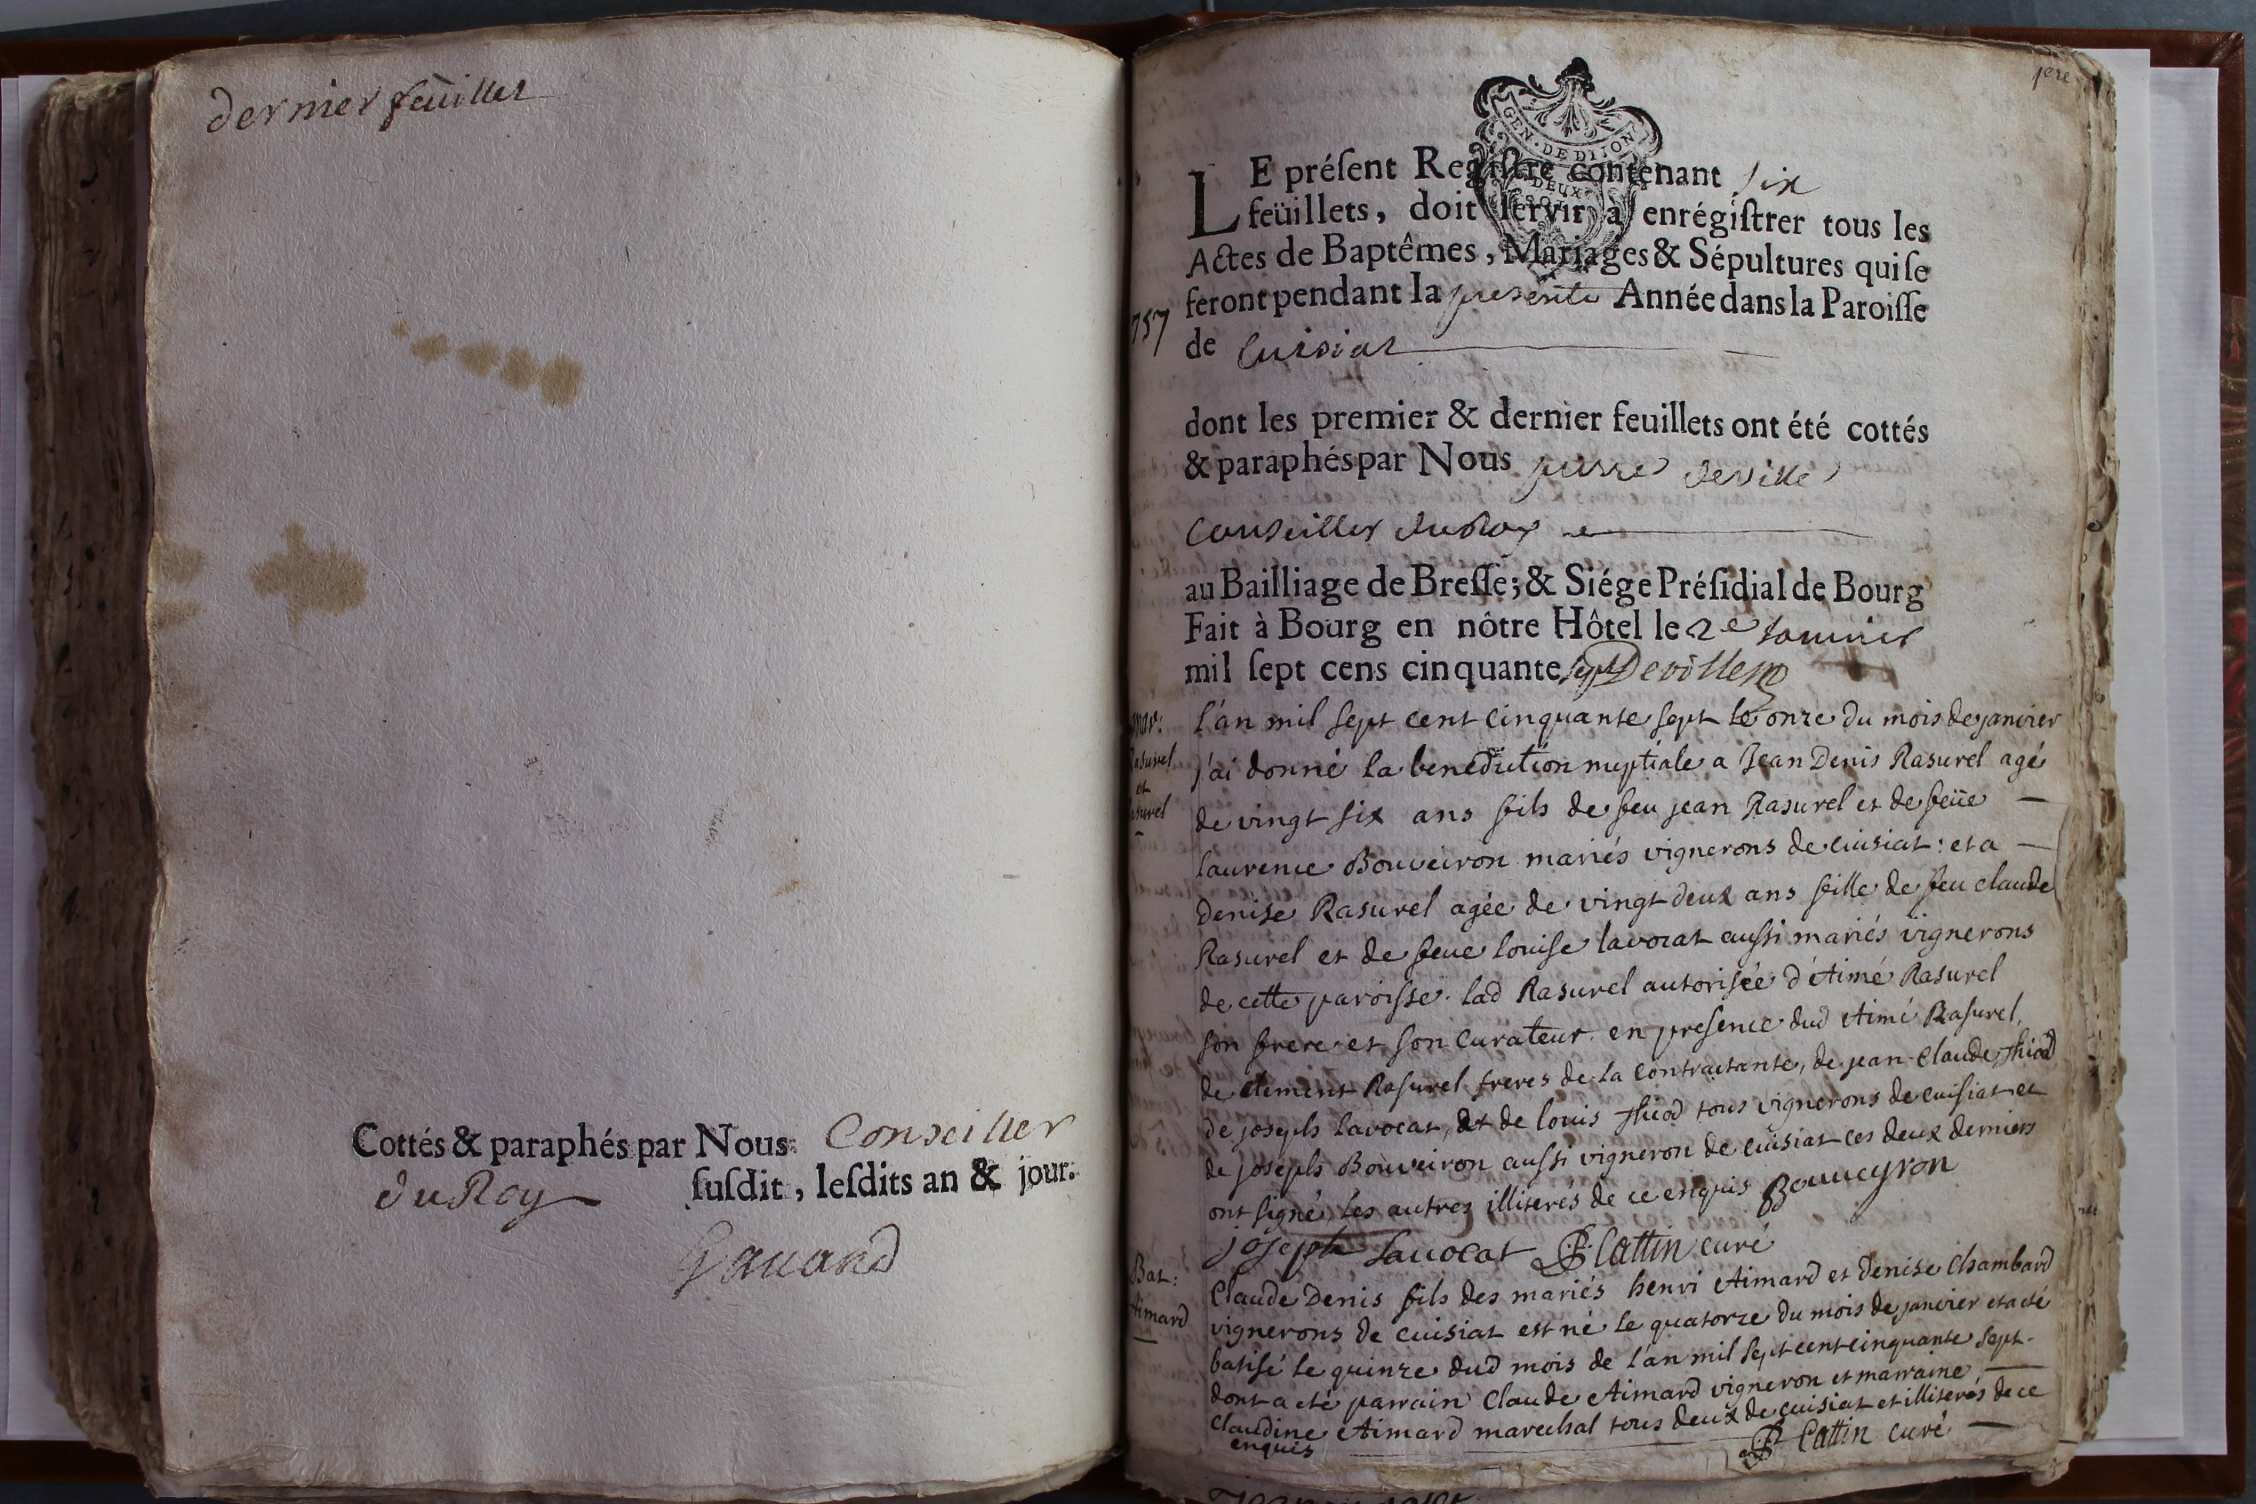 dernier feüillet
Cottés & paraphés par Nous Conseiller
du Roy susdit, lesdits an & jour.
Gauand
1ere
GEN. DE DIJON
DEUX
SOLS
LE présent Registre contenant six
feüillets, doit servir à enrégistrer tous les
Actes de Baptêmes, Mariages & Sépultures qui se
feront pendant la presente Année dans la Paroisse
757
de Cuisiat
dont les premier & dernier feuillets ont été cottés
& paraphés par Nous pierre deville
Conseiller du Roy
au Bailliage de Bresse; & Siége Présidial de Bourg
Fait à Bourg en nôtre Hôtel le 2e Januier
mil sept cens cinquante sept Deville
mar:
Rasurel
et
Rasurel
l'an mil sept cent cinquante sept le onze du mois de janvier
j'ai donné la benediction nuptiale a Jean Denis Rasurel agé
de vingt six ans fils de feu jean Rasurel et de feüe
laurence Bouveiron mariés vignerons de cuisiat: et a
Denise Rasurel agée de vingt deux ans fille de feu claude
Rasurel et de feue louise lavocat aussi mariés vignerons
de cette paroisse. lad Rasurel autorisée d'Aimé Rasurel
son frere et son curateur. en presence dud Aimé Rasurel,
de clement Rasurel freres de la contractante, de jean claude thicod
de joseph lavocat, et de louis thicod tous vignerons de cuisiat et
de joseph Bouveiron aussi vigneron de cuisiat ces deux derniers
ont signé, les autres illiterés de ce enquis Bouueyron
joseph Lauocat Cattin curé
Bat:
Aimard
Claude Denis fils des mariés henri Aimard et Denise Chambard
vignerons de cuisiat est né le quatorze du mois de janvier et a été
batisé le quinze dud mois de l'an mil sept cent cinquante sept.
dont a été parrain Claude Aimard vigneron et marraine
Claudine Aimard marechal tous deux de cuisiat et illiterés de ce
enquis Cattin curé